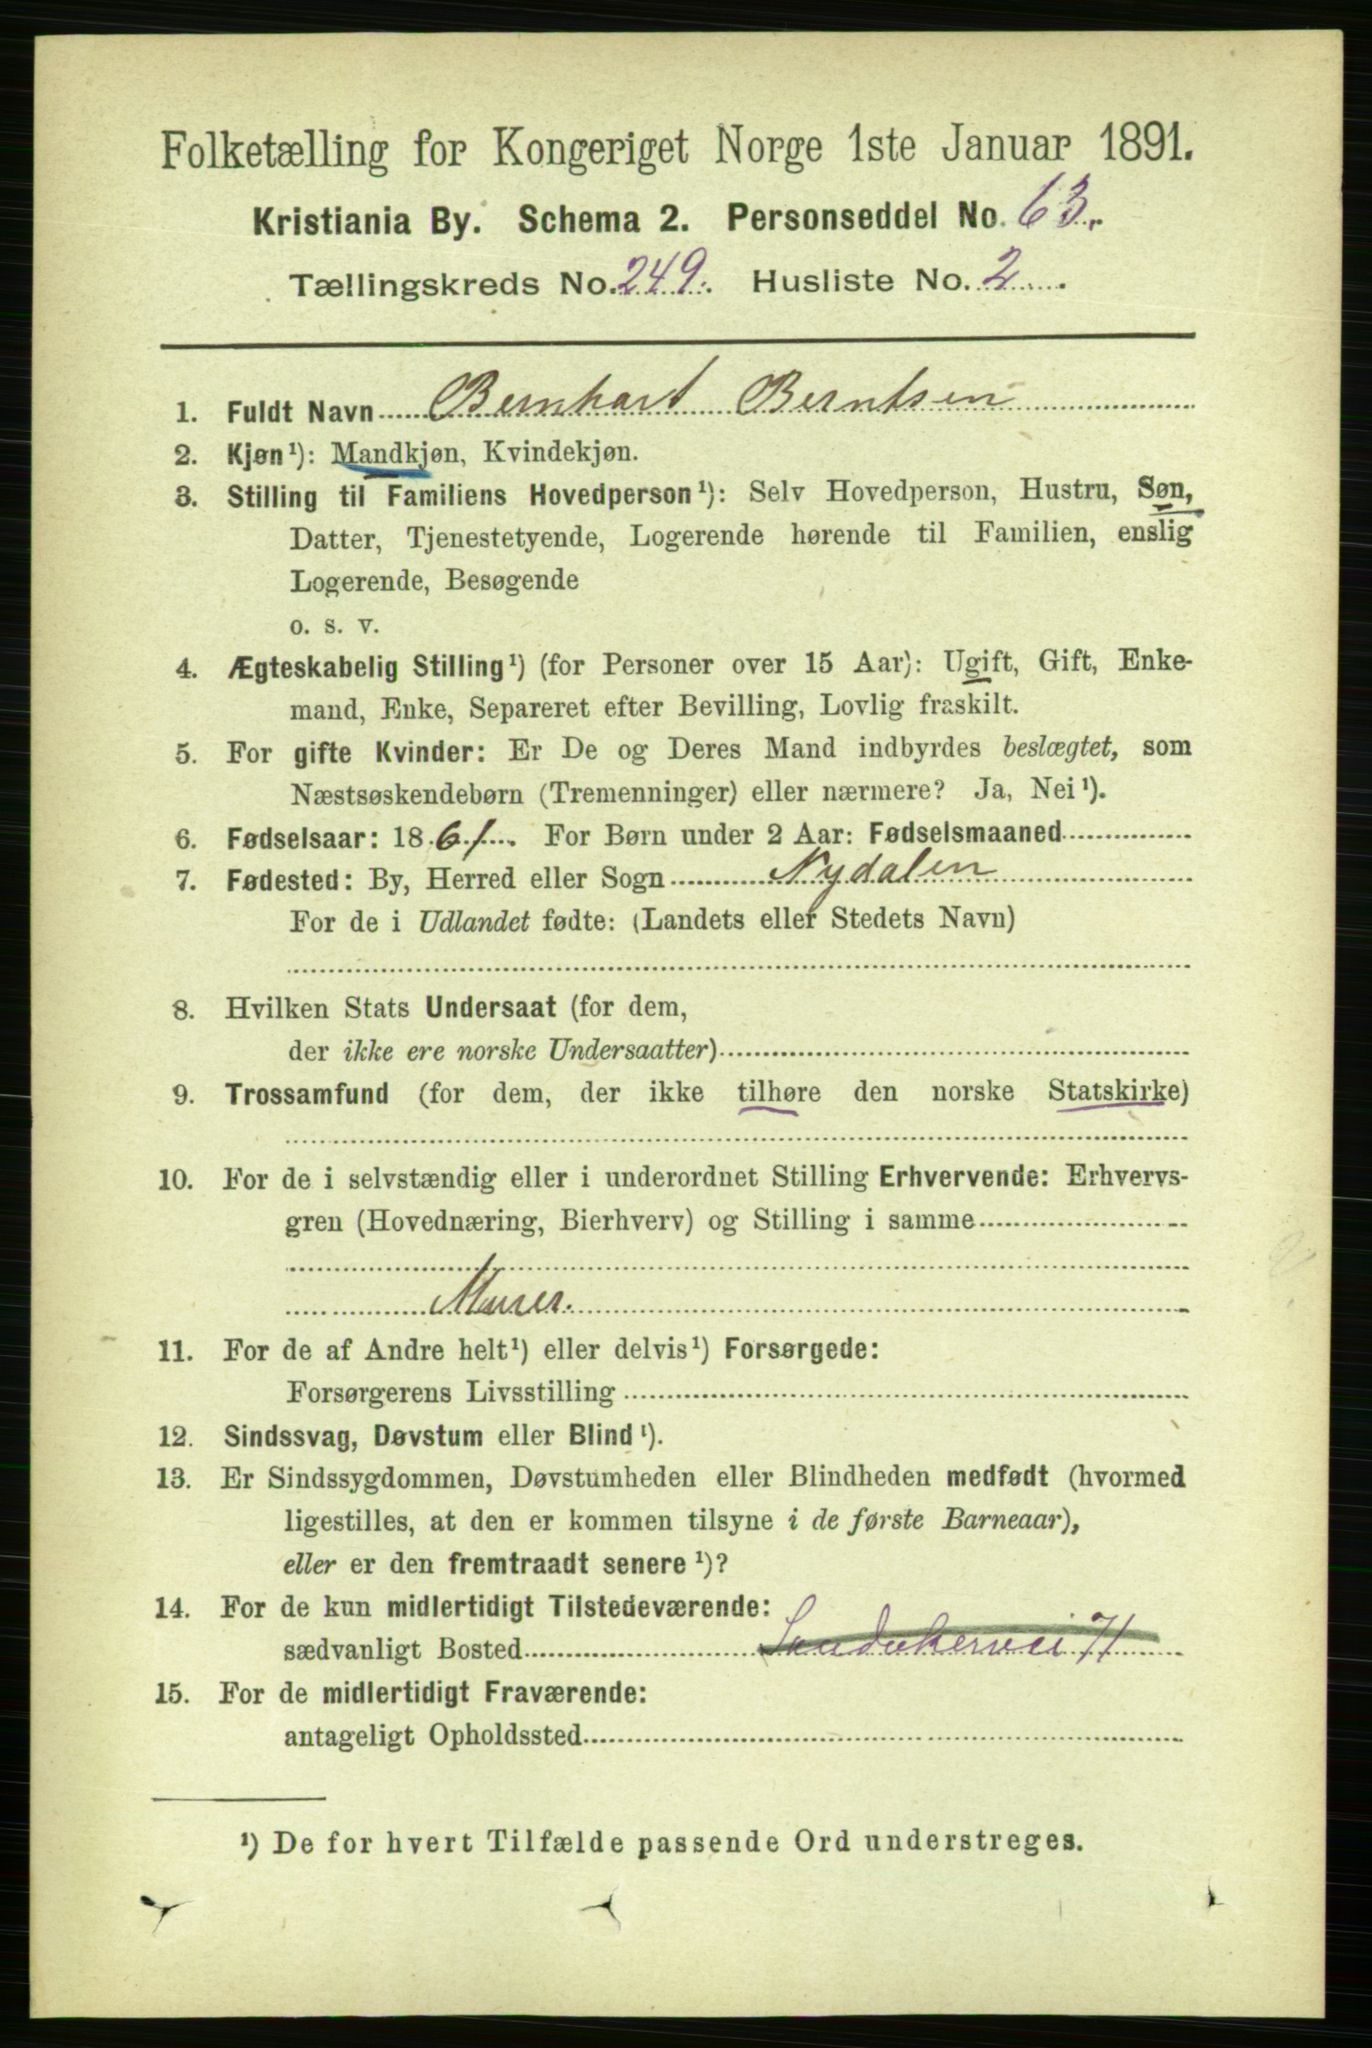 Folketælling for Kongeriget Norge 1ste Januar 1891.
Kristiania By. Schema 2. Personseddel No. 63.
Tællingskreds No. 249. Husliste No. 2
1. Fuldt Navn Bernhart Berntsen
2. Kjøn¹): Mandkjøn, Kvindekjøn.
3. Stilling til Familiens Hovedperson¹): Selv Hovedperson, Hustru, Søn,
Datter, Tjenestetyende, Logerende hørende til Familien, enslig
Logerende, Besøgende
o. s. v.
4. Ægteskabelig Stilling¹) (for Personer over 15 Aar): Ugift, Gift, Enke-
mand, Enke, Separeret efter Bevilling, Lovlig fraskilt.
5. For gifte Kvinder: Er De og Deres Mand indbyrdes beslægtet, som
Næstsøskendebørn (Tremenninger) eller nærmere? Ja, Nei¹).
6. Fødselsaar: 1861. For Børn under 2 Aar: Fødselsmaaned
7. Fødested: By, Herred eller Sogn Nydalen
For de i Udlandet fødte: (Landets eller Stedets Navn)
8. Hvilken Stats Undersaat (for dem,
der ikke ere norske Undersaatter)
9. Trossamfund (for dem, der ikke tilhøre den norske Statskirke)
10. For de i selvstændig eller i underordnet Stilling Erhvervende: Erhvervs-
gren (Hovednæring, Bierhverv) og Stilling i samme
Murer.
11. For de af Andre helt¹) eller delvis¹) Forsørgede:
Forsørgerens Livsstilling
12. Sindssvag, Døvstum eller Blind¹).
13. Er Sindssygdommen, Døvstumheden eller Blindheden medfødt (hvormed
ligestilles, at den er kommen tilsyne i de første Barneaar),
eller er den fremtraadt senere¹)?
14. For de kun midlertidigt Tilstedeværende:
sædvanligt Bosted Sandakervei 71
15. For de midlertidigt Fraværende:
antageligt Opholdssted
¹) De for hvert Tilfælde passende Ord understreges.